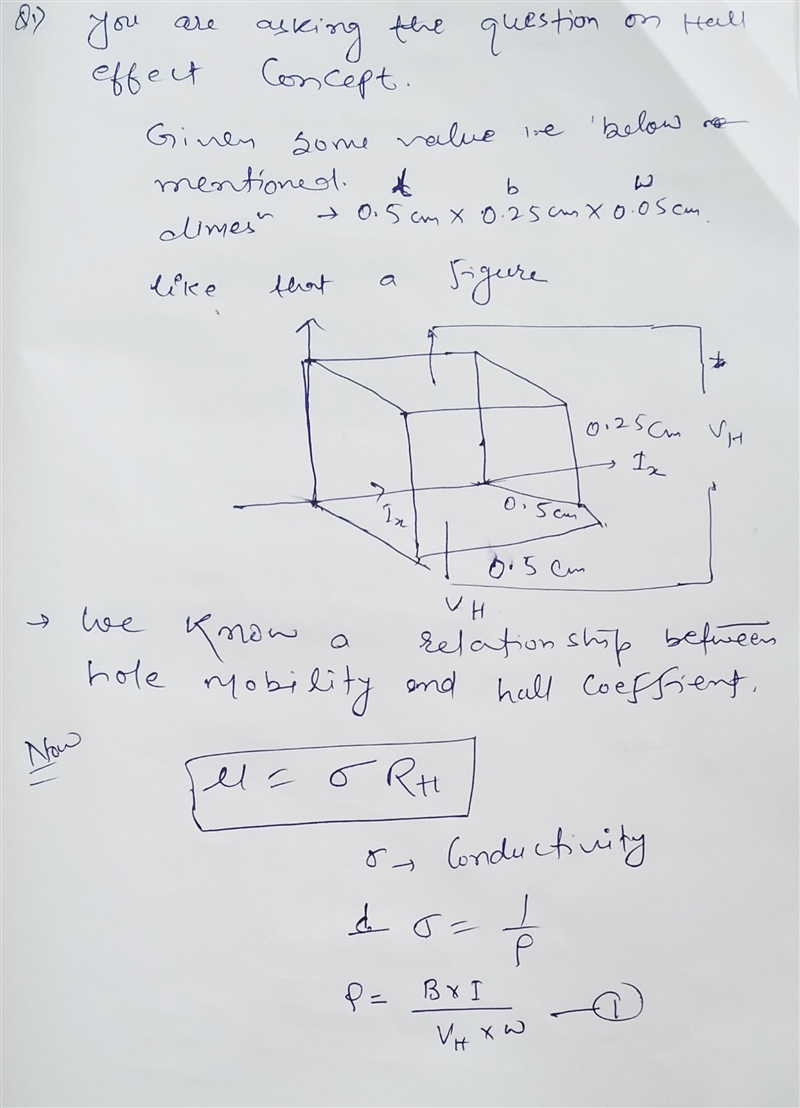 Q.1) You are asking the question on Hall
effect Concept.
Given some value i.e below
mentioned.
t b w
dimesⁿ → 0.5 cm x 0.25 cm x 0.05 cm.
like that a figure
0.25 cm V_H
I_x
I_x
0.5 cm
0.5 cm
V_H
→ We Know a relationship between
hole mobility and hall Coeffient.
Now
μ = σ R_H
σ → Conductivity
σ = 1/ρ
ρ = (B x I)/(V_H x w) — ①